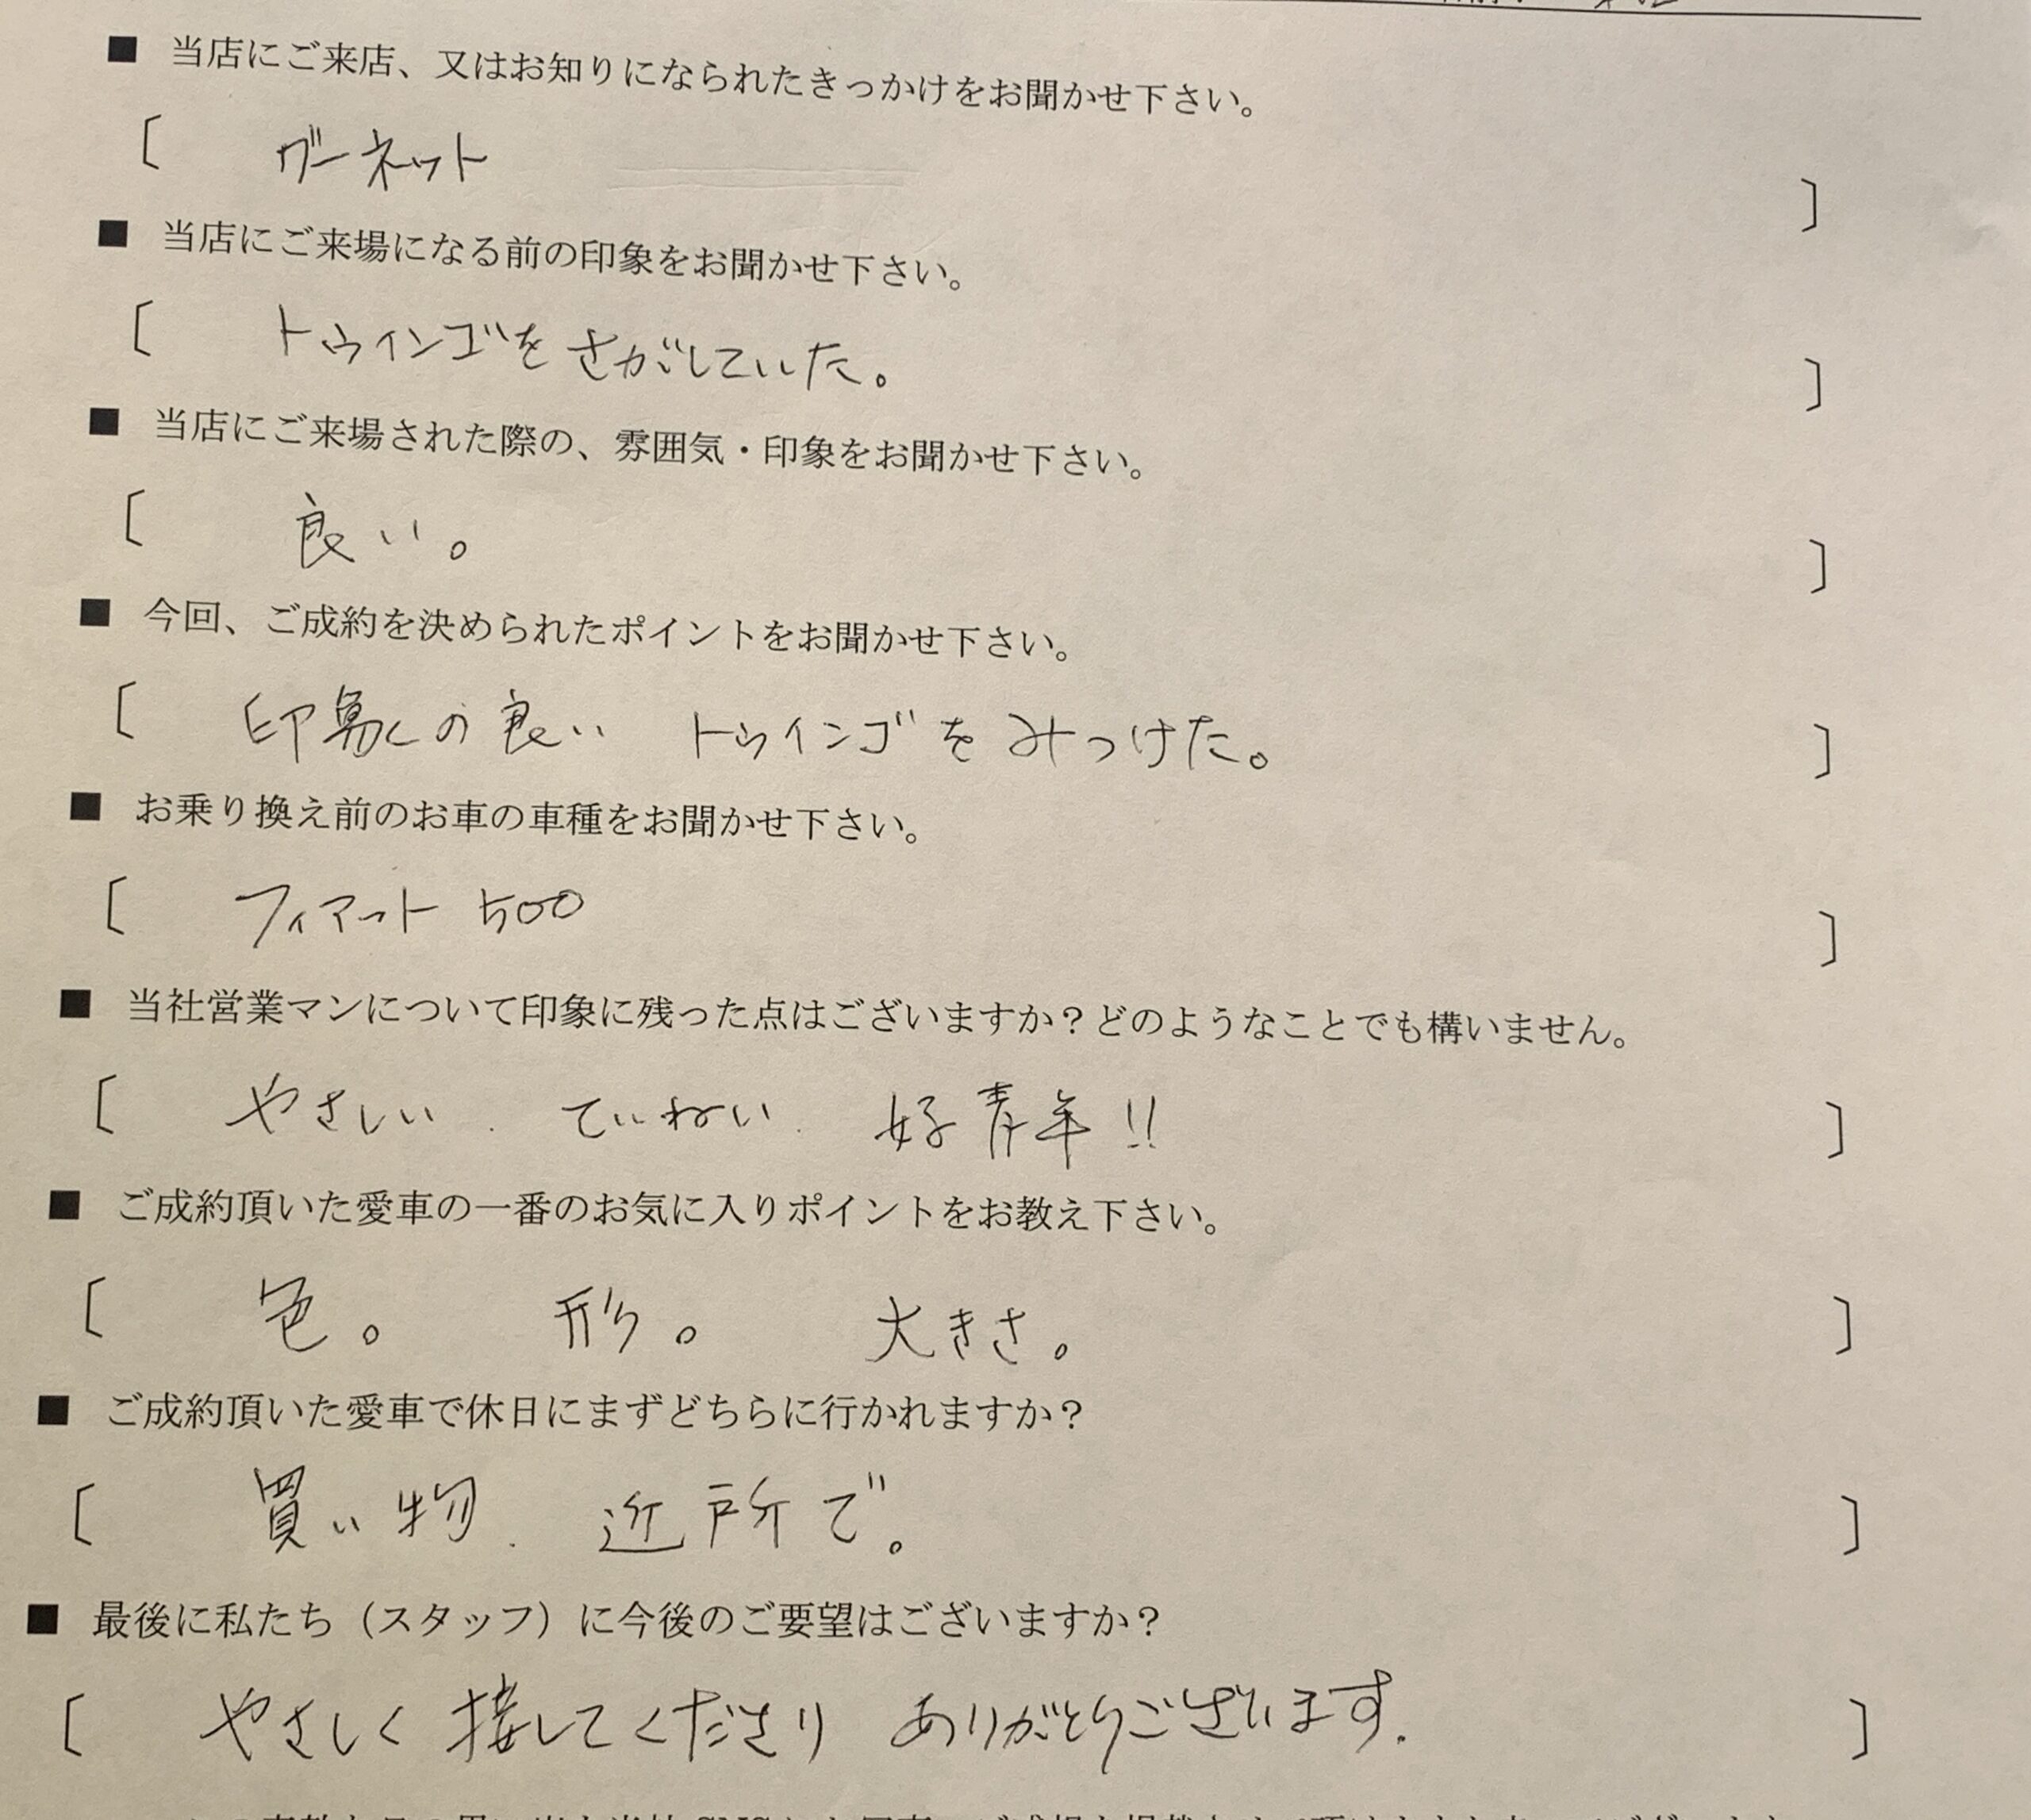 ■ 当店にご来店、又はお知りになられたきっかけをお聞かせ下さい。
〔 グーネット 〕
■ 当店にご来場になる前の印象をお聞かせ下さい。
〔 トゥインゴをさがしていた。 〕
■ 当店にご来場された際の、雰囲気・印象をお聞かせ下さい。
〔 良い。 〕
■ 今回、ご成約を決められたポイントをお聞かせ下さい。
〔 印象の良い トゥインゴをみつけた。 〕
■ お乗り換え前のお車の車種をお聞かせ下さい。
〔 フィアット 500 〕
■ 当社営業マンについて印象に残った点はございますか？どのようなことでも構いません。
〔 やさしい. ていねい. 好青年!! 〕
■ ご成約頂いた愛車の一番のお気に入りポイントをお教え下さい。
〔 色。 形。 大きさ。 〕
■ ご成約頂いた愛車で休日にまずどちらに行かれますか？
〔 買い物. 近所で。 〕
■ 最後に私たち（スタッフ）に今後のご要望はございますか？
〔 やさしく接してくださり ありがとうございます. 〕